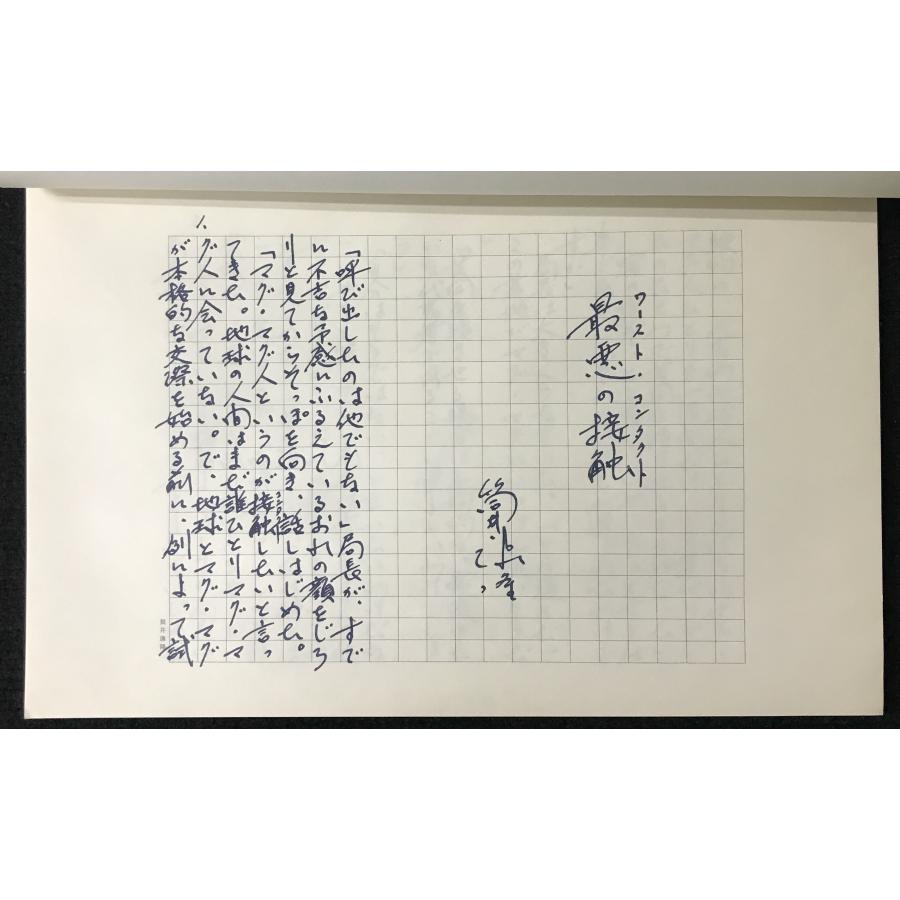 ワースト・コンタクト
最悪の接触
筒井康隆
「呼び出したのは他でもない」局長が、すで
に不吉な予感にふるえているおれの顔をじろ
りと見てからそっぽを向き、話しはじめた。
コンタクト
「マグ・マグ人というのが接触したいと言っ
てきた。地球の人間はまだ誰ひとりマグ・マ
グ人に会っていない。で、地球とマグ・マグ
人
が本格的な交際を始める前に、例によって試
筒井康隆